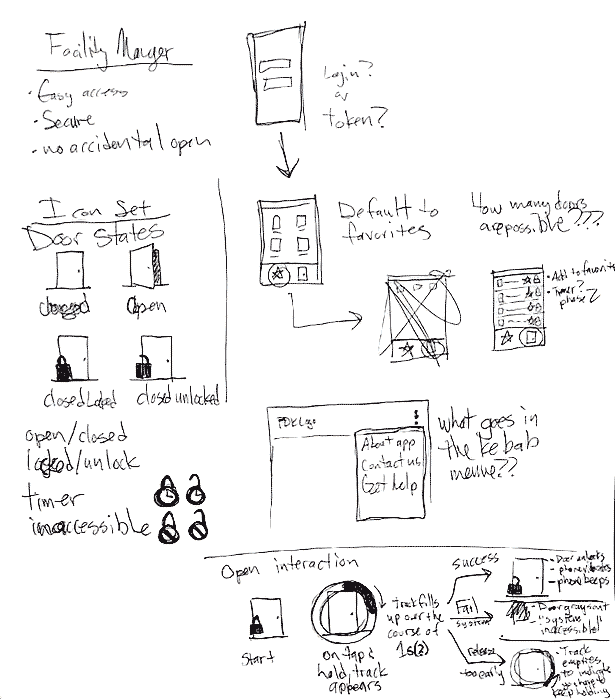 Facility Manger
• Easy access
• Secure
• no accidental open
Login?
or
token?
Icon Set
Door States
closed
Open
closed Locked
closed unlocked
open/closed
locked/unlock
timer
inaccessible
Default to
favorites
How many doors
are possible???
• Add to favorite
• Timer?
phase 2
About app
Contact us
Get help
what goes in
the kebab
menue??
Open interaction
Start
on tap &
hold, track
appears
track fills
up over the
course of
1s(?)
success
• Door unlocks
- phone vibrates
- phone beeps
Fail
system
• Door grays out
"system
inaccessible"
release
too early
• Track
empties
to indicate
to have to
keep holding